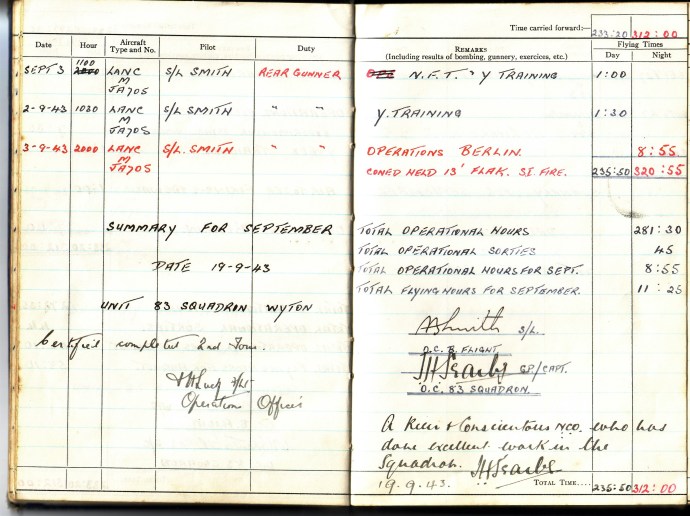 Time carried forward:— 233:20 312:00
Date Hour Aircraft Type and No. Pilot Duty
REMARKS (Including results of bombing, gunnery, exercises, etc.)
Flying Times
Day Night
SEPT 3 1100 LANC M JA705 S/L SMITH REAR GUNNER N.F.T. Y TRAINING 1:00
2-9-43 1030 LANC M JA705 S/L SMITH " " Y. TRAINING 1:30
3-9-43 2000 LANC M JA705 S/L. SMITH " " OPERATIONS BERLIN. 8:55
CONED HELD 13' FLAK. S.I. FIRE. 235:50 320:55
SUMMARY FOR SEPTEMBER
DATE 19-9-43
UNIT 83 SQUADRON WYTON
Certified completed 2nd Tour.
Operations Officer
TOTAL OPERATIONAL HOURS 281:30
TOTAL OPERATIONAL SORTIES 45
TOTAL OPERATIONAL HOURS FOR SEPT. 8:55
TOTAL FLYING HOURS FOR SEPTEMBER. 11:25
ASmith S/L.
O.C. B. FLIGHT
JHSearby GP/CAPT.
O.C. 83 SQUADRON.
A Keen + Conscientous NCO. who has
done excellent work in the
Squadron. JHSearby
19.9.43.
TOTAL TIME.... 235:50 312:00